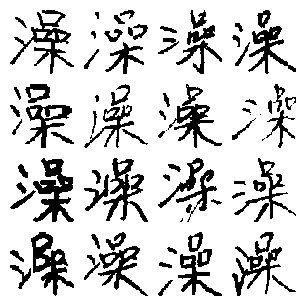 澡澡澡澡
澡澡澡澡
澡澡澡澡
澡澡澡澡